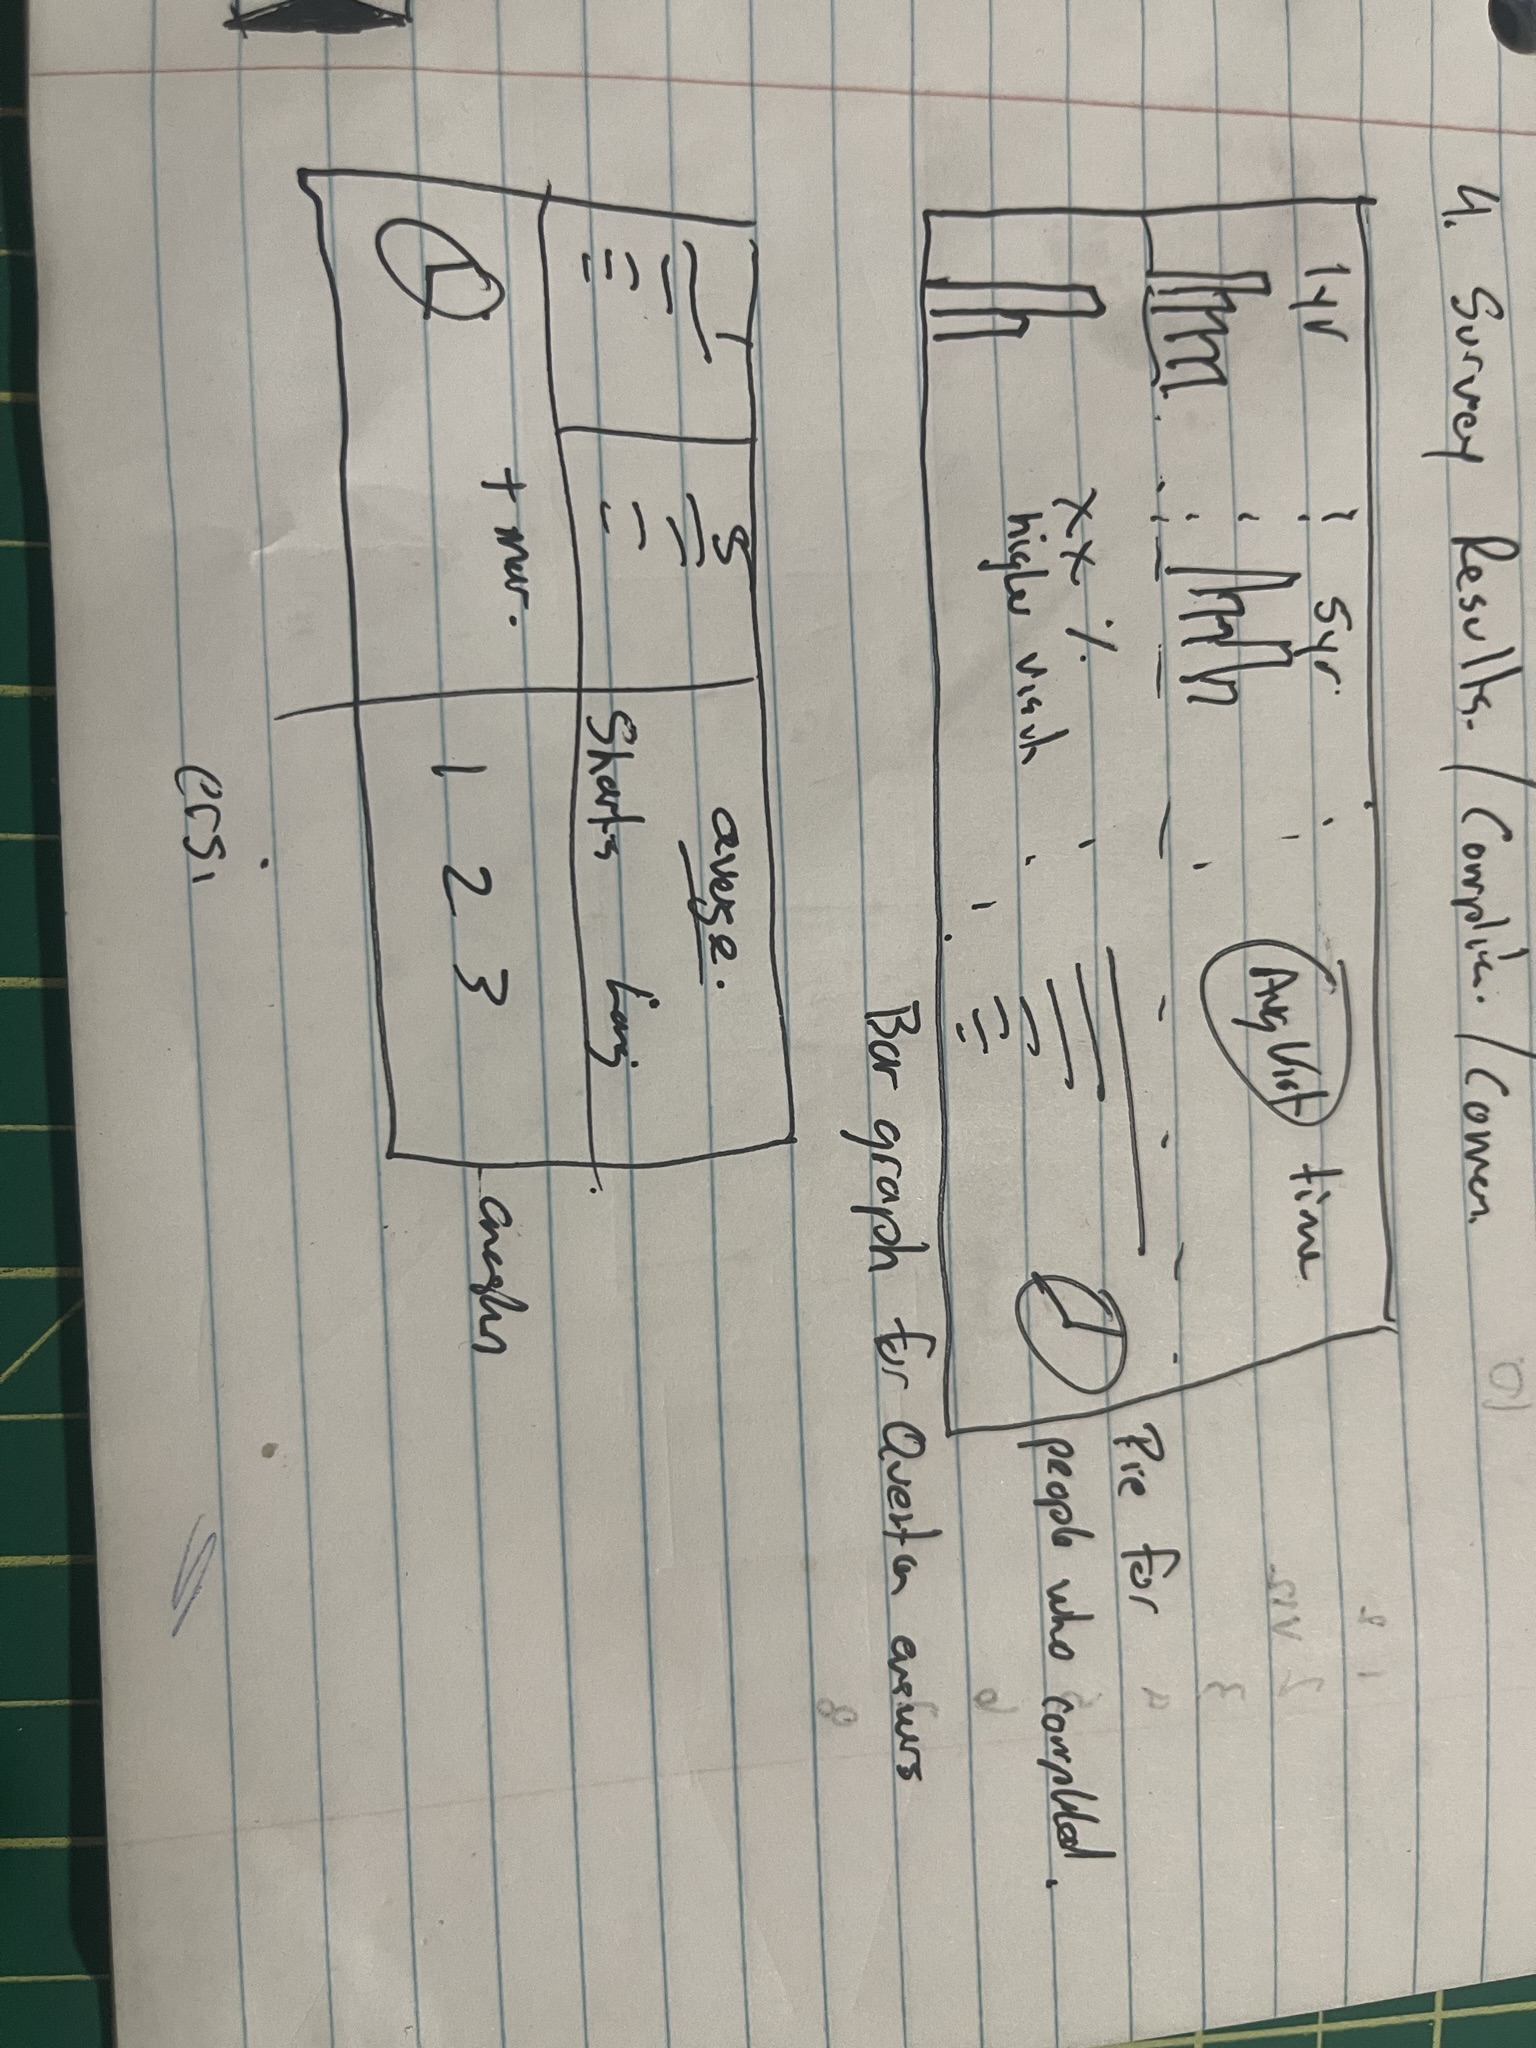 4. Survey Results. / Complic. / Commen.
1yr 5yr. Avg Visit time
xx %
higher visuh
Pie for
people who completed.
Bar graph for Question answers
1 5 averge.
Shorts Long
+ mor.
1 2 3